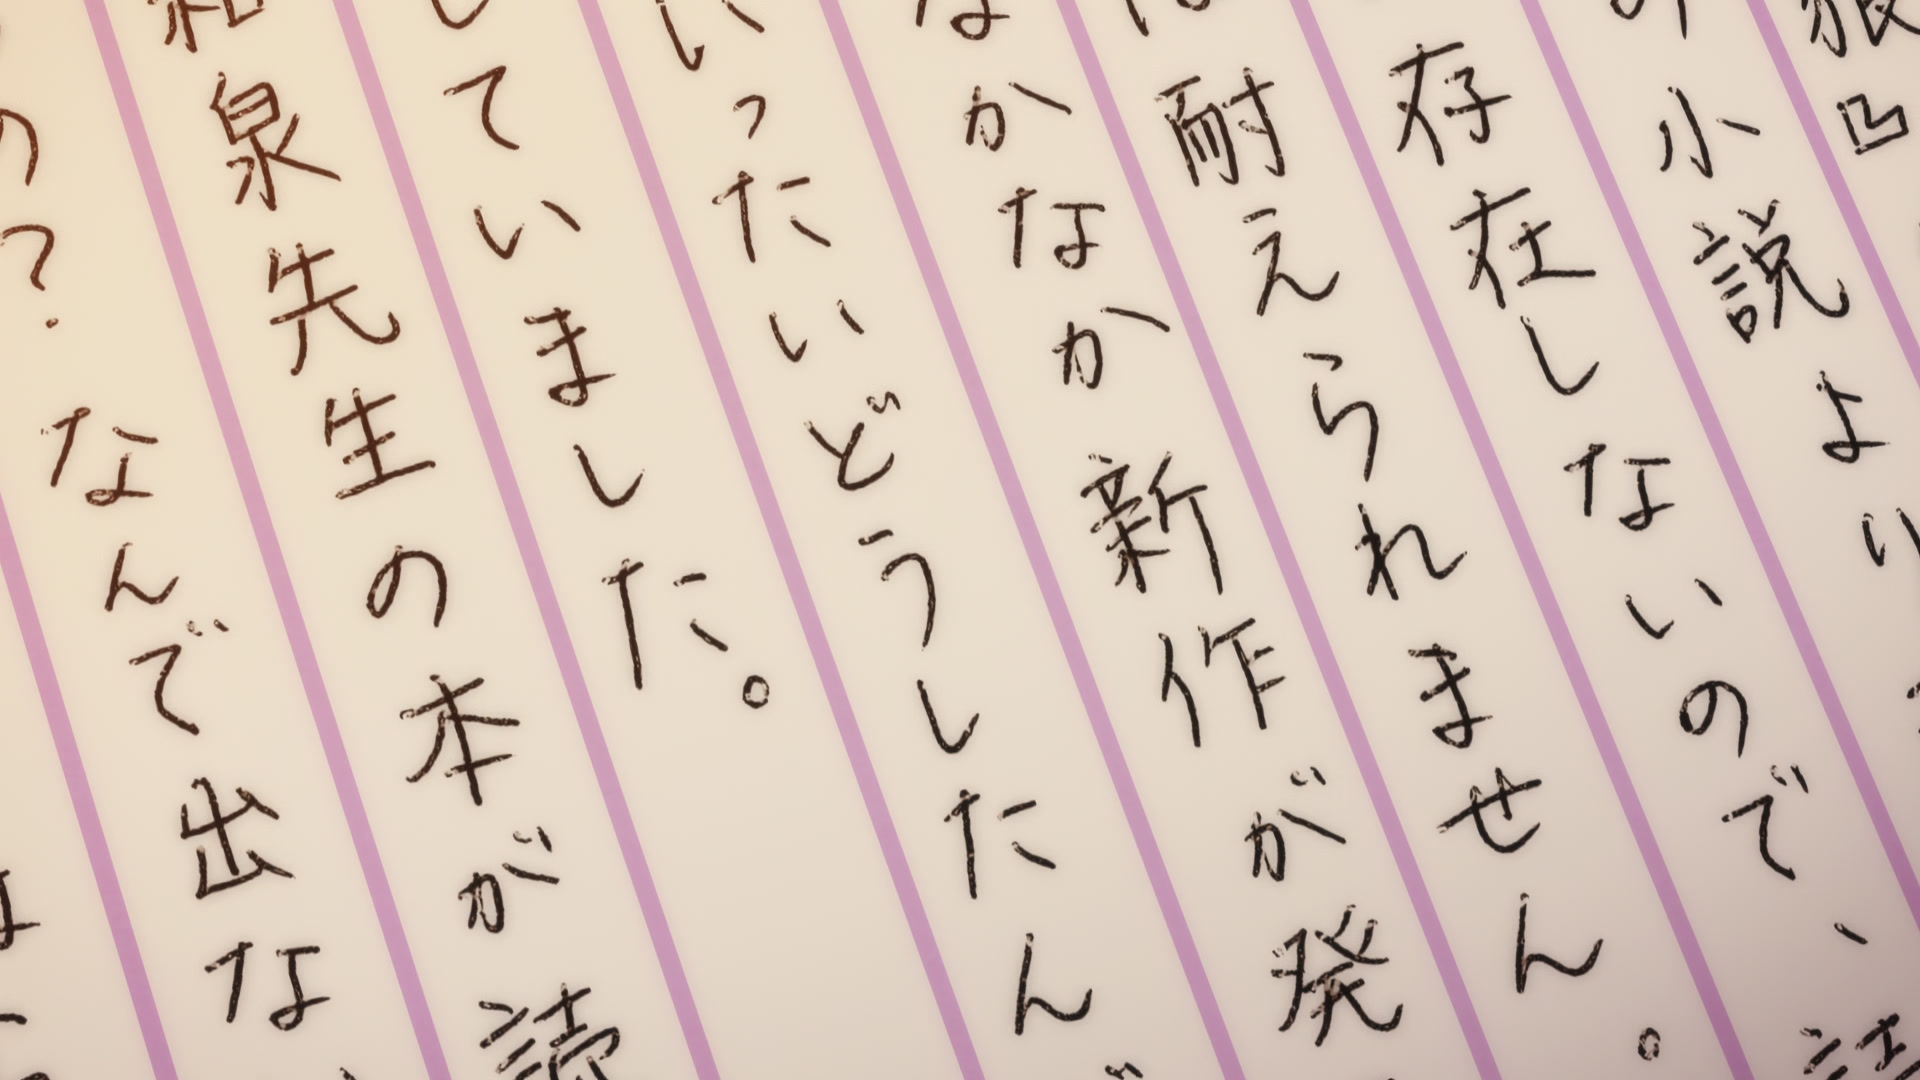 凹
の小説より
存在しないので、
に耐えられません。
なかなか新作が発
いったいどうしたん
していました。
和泉先生の本が読
の?なんで出な